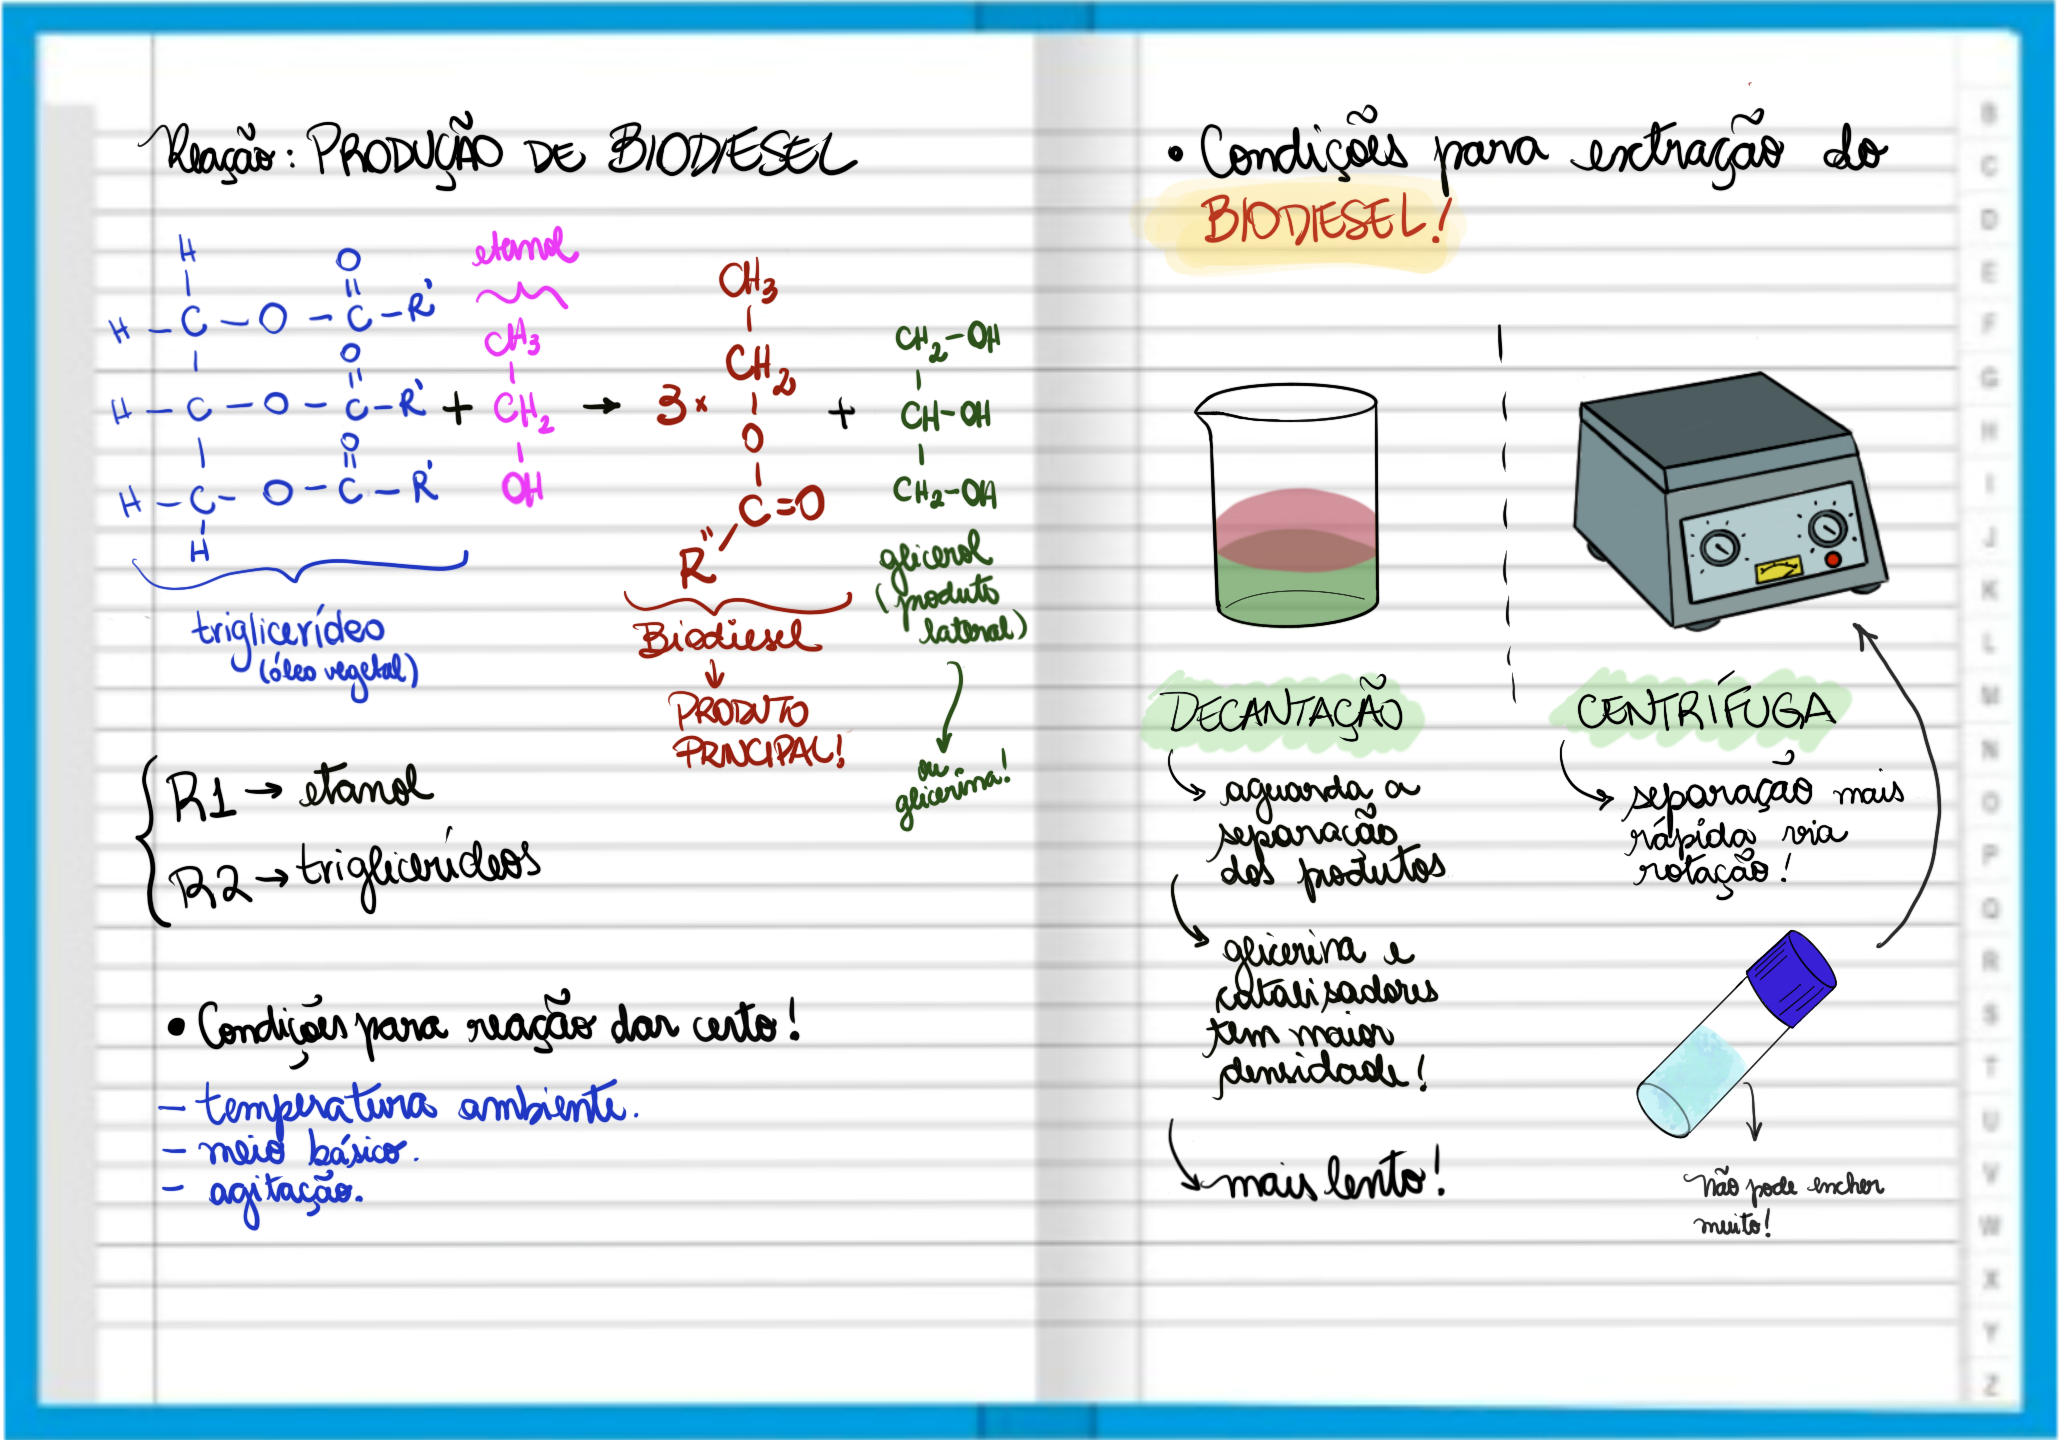 Reação: PRODUÇÃO DE BIODIESEL
etanol
H
H – C – O – C – R'
O
H – C – O – C – R'
O
H – C – O – C – R'
O
H
+
CH3
CH2
OH
→
3×
CH3
CH2
O
C=O
R"
+
CH2-OH
CH-OH
CH2-OH
triglicerídeo
(óleo vegetal)
Biodiesel
↓
PRODUTO
PRINCIPAL!
glicerol
(produto
lateral)
ou
glicerina!
R1 → etanol
R2 → triglicerídeos
• Condições para reação dar certo!
– temperatura ambiente.
– meio básico.
– agitação.
• Condições para extração do
BIODIESEL!
DECANTAÇÃO
aguarda a
separação
dos produtos
glicerina e
catalisadores
tem maior
densidade!
mais lento!
CENTRÍFUGA
separação mais
rápida via
rotação!
Não pode encher
muito!
B
C
D
E
F
G
H
I
J
K
L
M
N
O
P
Q
R
S
T
U
V
W
X
Y
Z